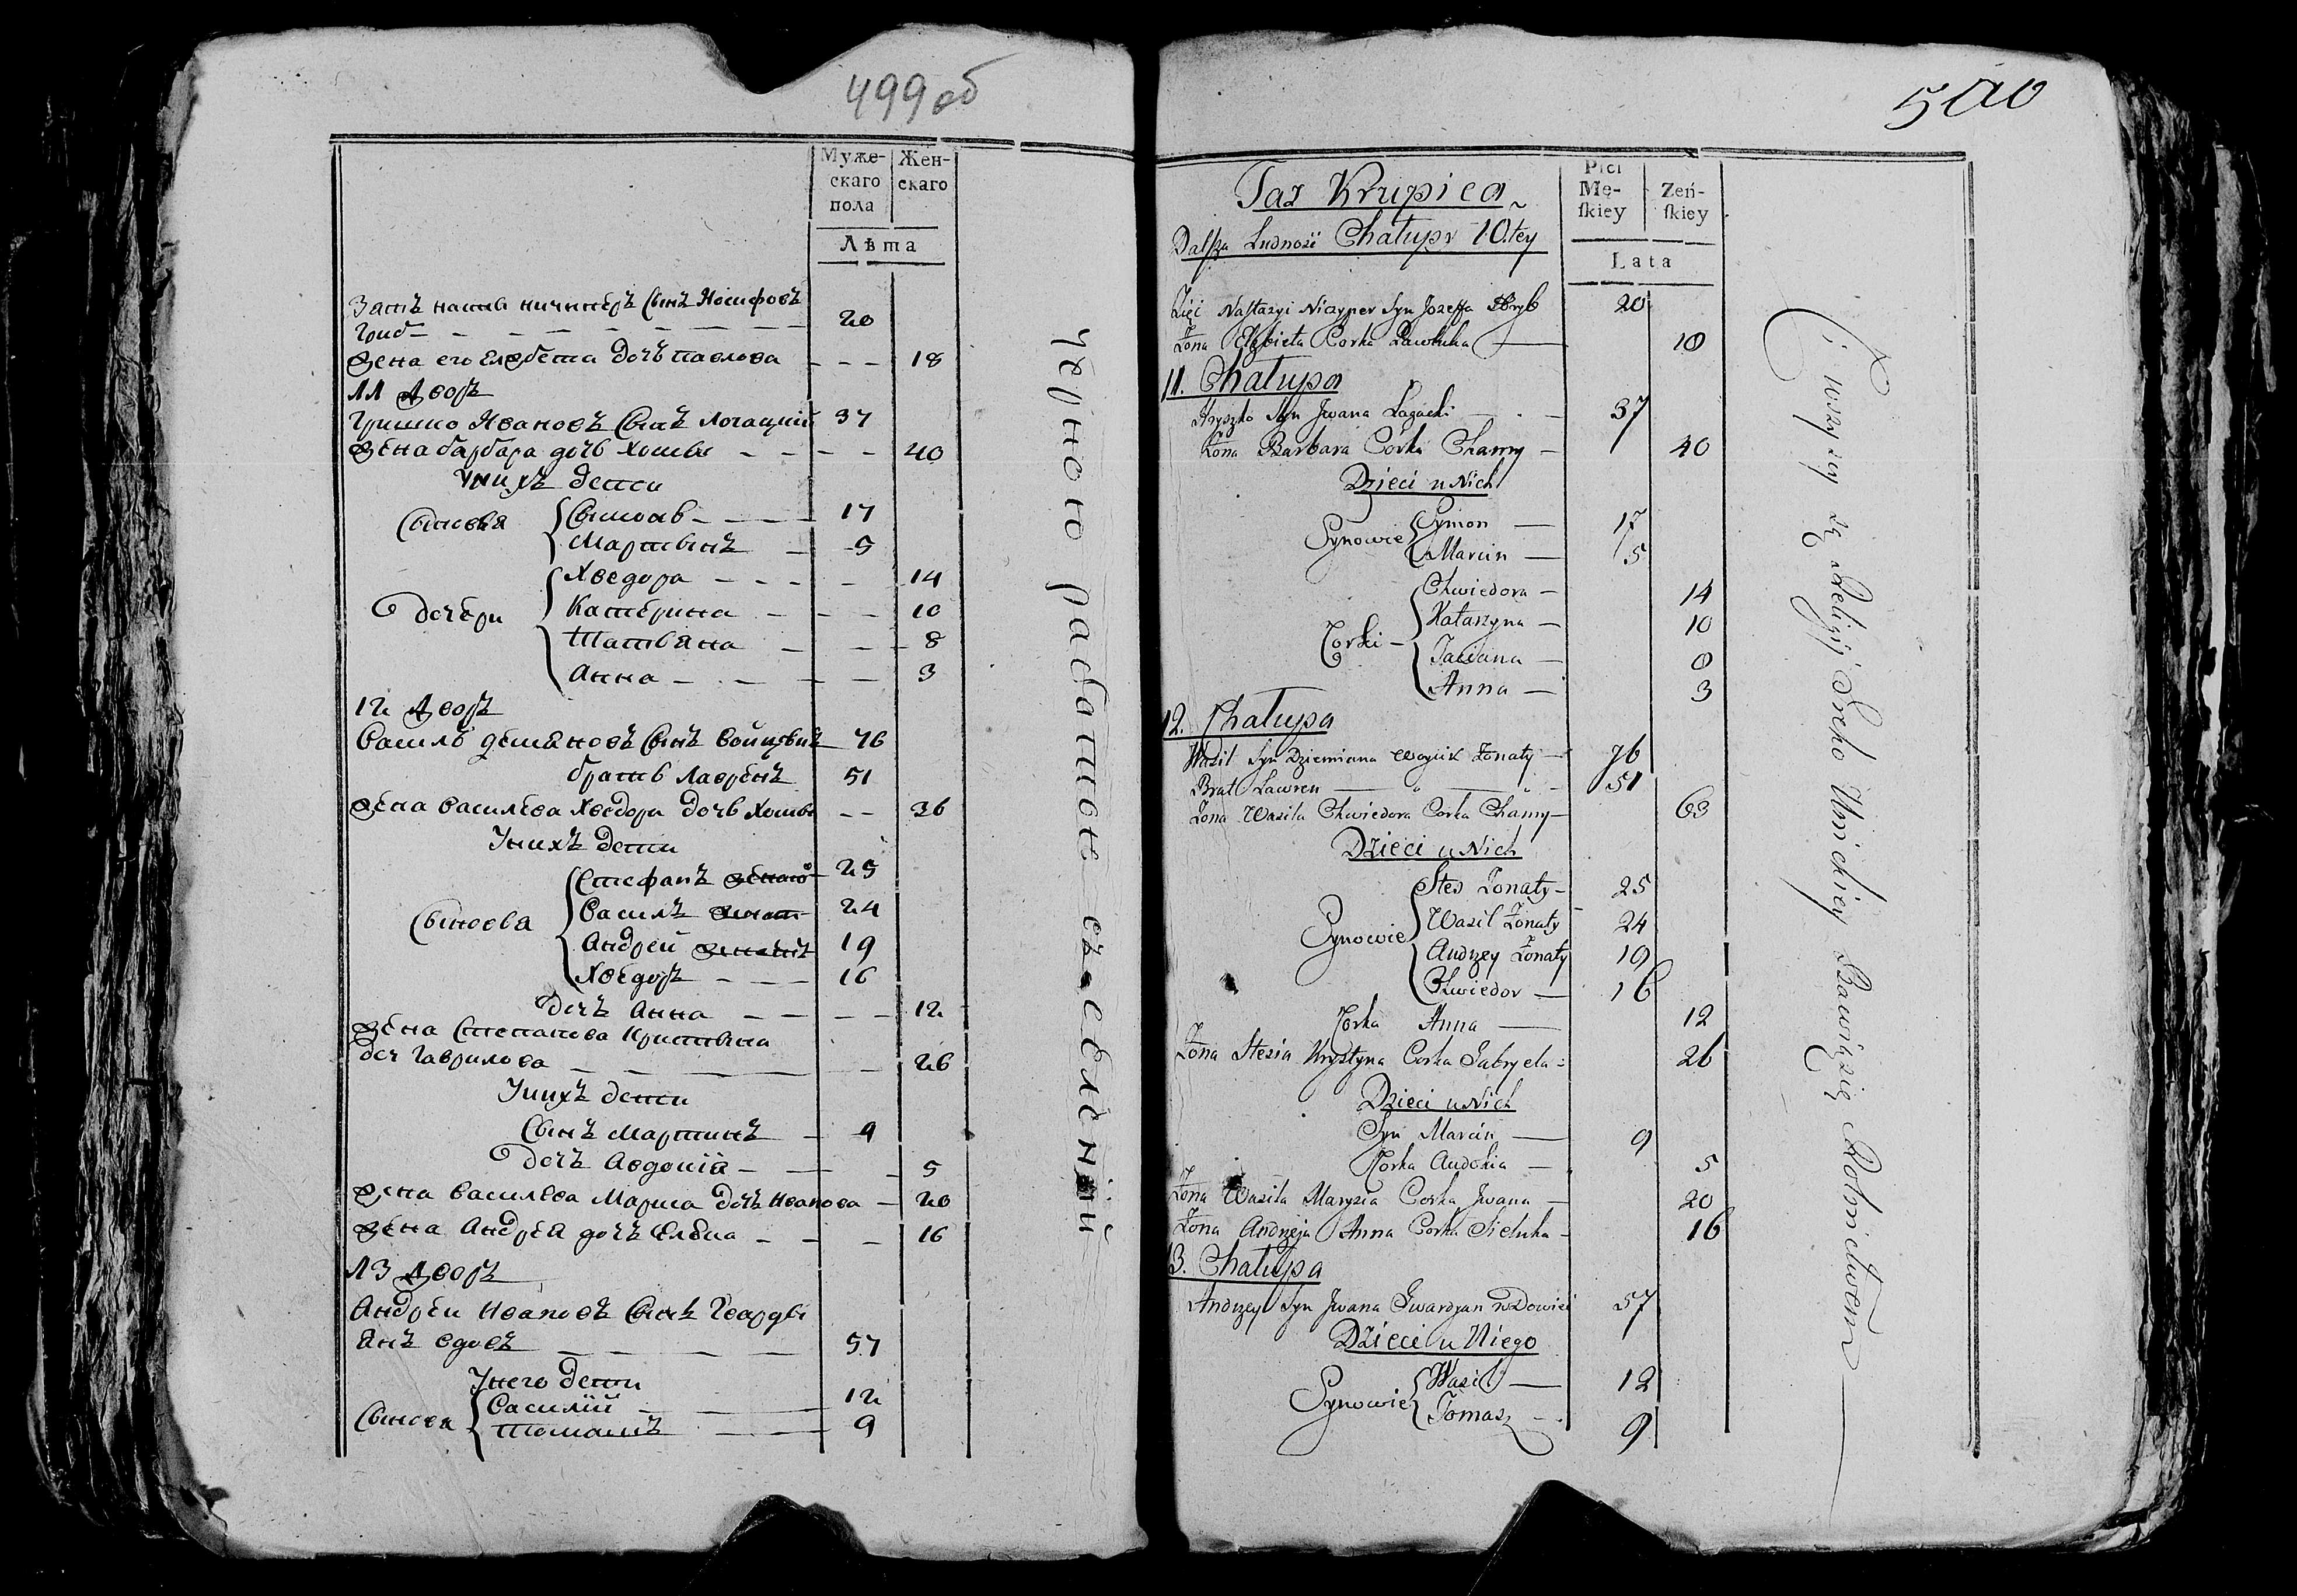 499 об
Муже-
скаго
пола
Жен-
скаго
Лѣта
Зять насты ничипѣръ Сынъ Иосифовъ
Гриб 20
Жена его Елжбета Дочъ павлова 18
11 Дворъ
Гришко Ивановъ Сынъ Логацкий 37
жена барбара дочь хомы 40
Унихъ дети
Сыновья
Сымонь 17
Мартынъ 5
Дочери
Хведора 14
Катерина 10
Татьяна 8
Анна 3
12 Дворъ
Василь демяновъ Сынъ 76
братъ Лаврѣнъ 51
жена василева Хведора Дочь хомы 36
Унихъ Дети
Сыновья
Стефанъ 25
Василъ 24
Андрей 19
Хведоръ 16
Дочъ Анна 12
жена Степанова Кристына
доч Гаврилова 26
Унихъ дети
Сынъ Мартинъ 9
Дочъ Авдокия 5
жена василева Мариса Дочъ Иванова 20
жена Андрея дочъ 16
13 Дворъ
Андрѣй Ивановъ Сынъ Гварды
янъ вдовъ 57
Унего Дети
Сыновя
Василий 12
Томашъ 9
чѣрною работою
500
Taż Krupica
Dalsza Ludność Chałupy 10.tey
Płci
Mę-
skiey
Żeń-
skiey
Lata
Zięć Nastazyi Niczyper Syn Jozeffa Hryb 20
Żona Elżbieta Corka Pawluka 18
11. Chałupa
Hryszko Syn Jwana Łagacki 37
Żona Barbara Corka Chamy 40
Dzieci u Nich
Synowie
Symon 17
Marcin 5
Corki
Chwiedora 14
Katarzyna 10
Taciana 8
Anna 3
12. Chałupa
Wasil Syn Dziemiana Woyciik Żonaty 76
Brat Lawren 51
Żona Wasila Chwiedora Corka Chamy 63
Dzieci u Nich
Synowie
Stes Żonaty 25
Wasil Żonaty 24
Andrzey Żonaty 19
Chwiedor 16
Corka Anna 12
Żona Stesia Krystyna Corka Gabryela 26
Dzieci u Nich
Syn Marcin 9
Corka Audokia 5
Żona Wasila Marysia Corka Jwana 20
Żona Andrzeja Anna Corka 16
13. Chałupa
Andrzey Syn Jwana Gwardyan wdowiec 57
Dzieci u Niego
Synowie
Wasil 12
Tomasz 9
Ci wszyscy są Religij Greko Unickiey Bawią się Robnictwem